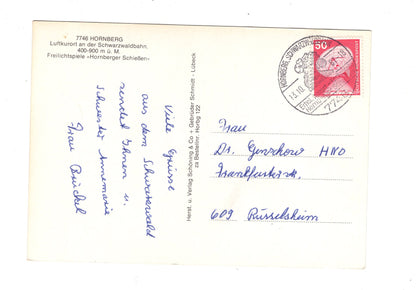 7746 HORNBERG
Luftkurort an der Schwarzwaldbahn.
400-900 m ü. M.
Freilichtspiele »Hornberger Schießen«
Viele Grüsse
aus dem Schwarzwald
sendet Ihnen u.
Schwester Annemarie
Frau Brückel
Herst. u. Verlag Schöning & Co + Gebrüder Schmidt - Lübeck
zu Bestellnr. Horbg 122
50
HORNBERG, SCHWARZWALD
13.10.
Frau
Dr. Gerschow HNO
Frankfurterstr.
609 Rüsselsheim